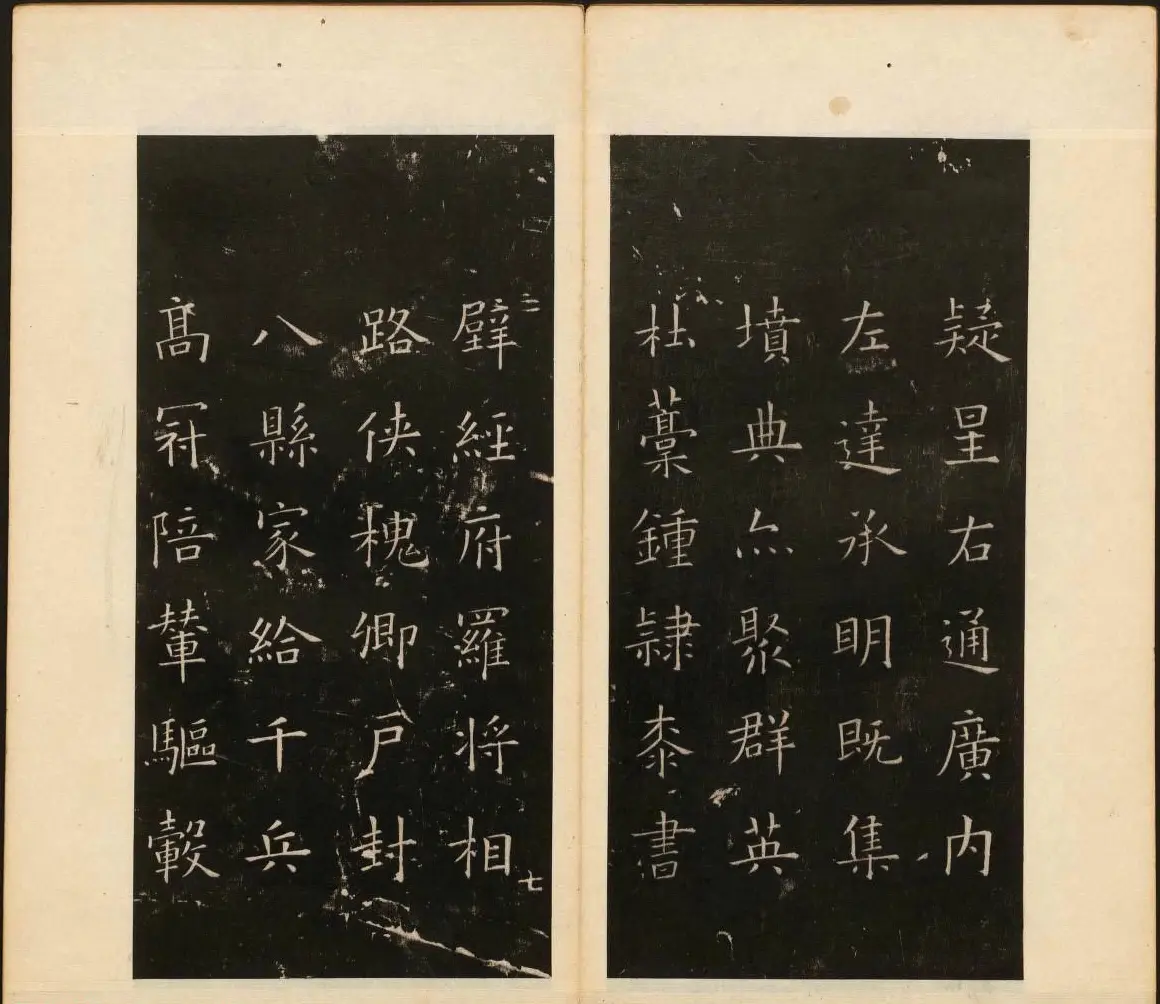 疑星右通廣内
左達承明既集
墳典亦聚群英
杜藁鍾隸漆書
二
壁經府羅将相
路俠槐卿戶封
八縣家給千兵
高冠陪輦驅轂
七